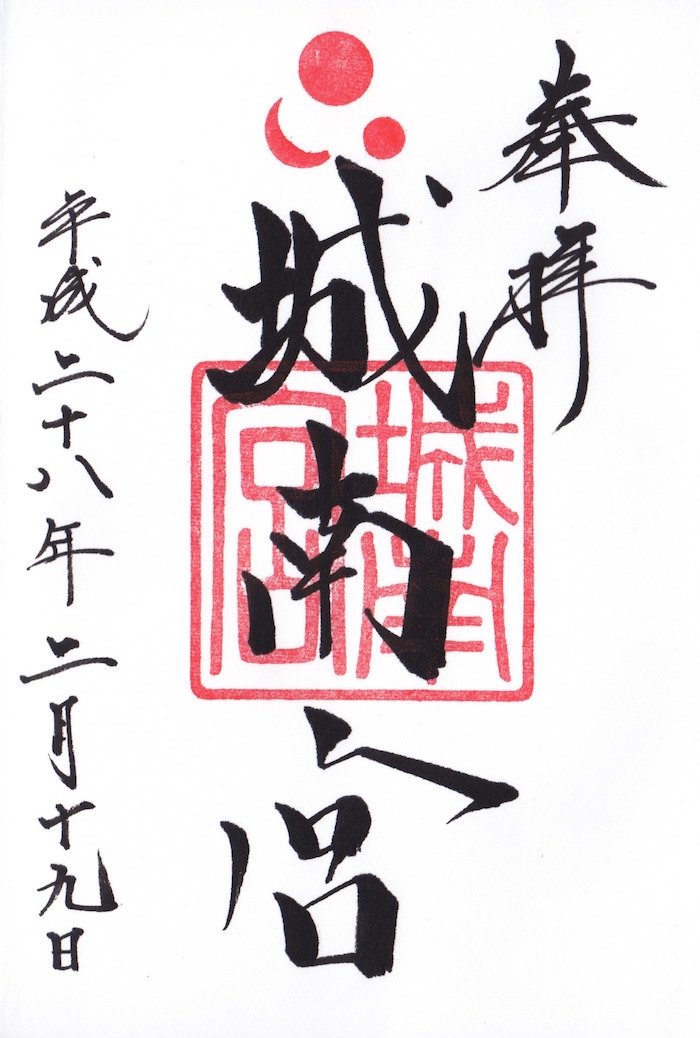 奉拝
城南宮
城南宮
平成二十八年二月十九日